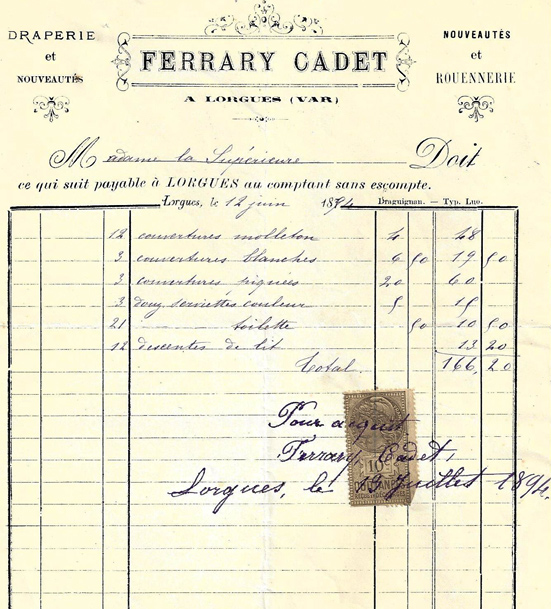 DRAPERIE
et
NOUVEAUTÉS
FERRARY CADET
A LORGUES (VAR)
NOUVEAUTÉS
et
ROUENNERIE
Madame la Supérieure Doit
ce qui suit payable à LORGUES au comptant sans escompte.
Lorgues, le 12 juin 1894 Draguignan. — Typ. Luo.
12 couvertures molleton 4 48
3 couvertures blanches 6 50 19 50
3 couvertures piquées 20 60
3 douz serviettes couleur 5 15
21 toilette 50 10 50
12 descentes de lit 13 20
Total. 166, 20
Pour acquit
Ferrary Cadet,
10 c
Lorgues, le 13 Juillet 1894.